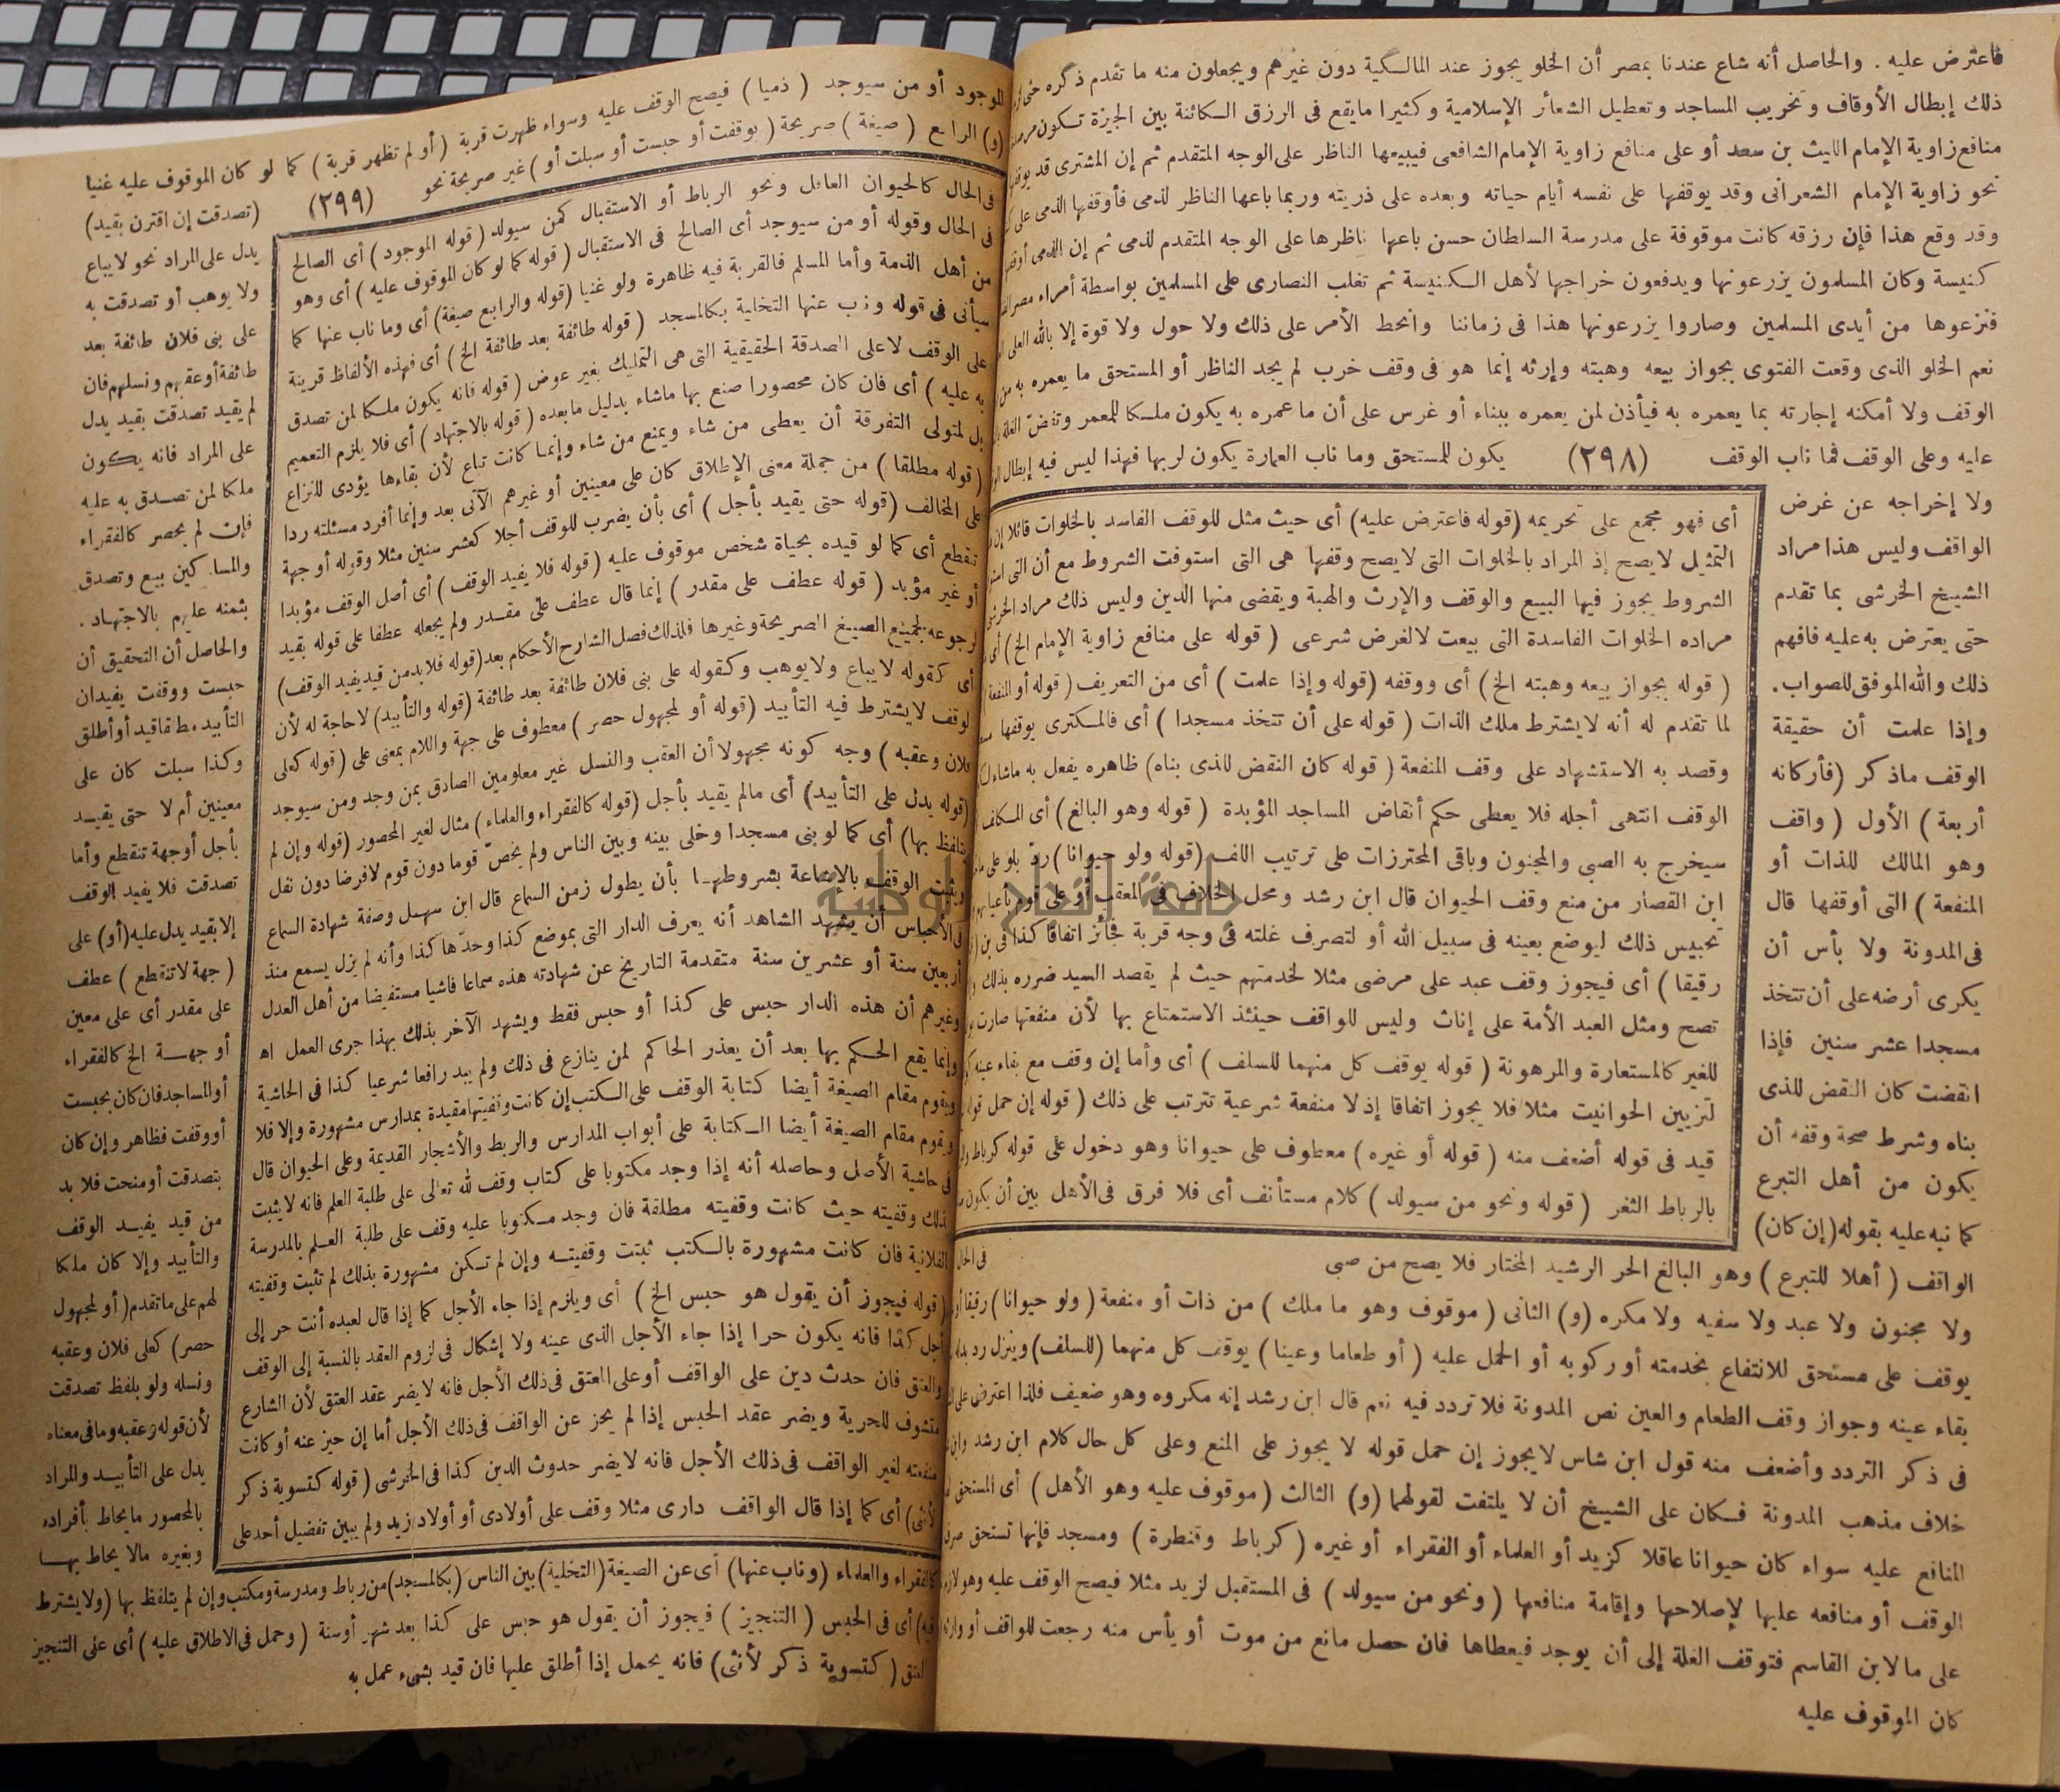 فاعترض عليه . والحاصل أنه شاع عندنا بمصر أن الخلو يجوز عند المالكية دون غيرهم ويجعلون منه ما تقدم ذكره حتى
ذلك إبطال الأوقاف وتخريب المساجد وتعطيل الشعائر الإسلامية وكثيرا مايقع فى الرزق الكائنة بين الجيزة تكون
منافع زاوية الإمام الليث بن سعد أو على منافع زاوية الإمام الشافعى فيبيعها الناظر على الوجه المتقدم ثم إن المشترى قد
نحو زاوية الإمام الشعرانى وقد يوقفها على نفسه أيام حياته وبعده على ذريته وربما باعها الناظر لذمى فأوقفها الذمى على
وقد وقع هذا فإن رزقه كانت موقوفة على مدرسة السلطان حسن باعها ناظرها على الوجه المتقدم لذمى ثم إن الذمى
كنيسة وكان المسلمون يزرعونها ويدفعون خراجها لأهل الكنيسة ثم تغلب النصارى على المسلمين بواسطة أمراء
فنزعوها من أيدى المسلمين وصاروا يزرعونها هذا فى زماننا وانحط الأمر على ذلك ولا حول ولا قوة إلا بالله العلى
نعم الخلو الذى وقعت الفتوى بجواز بيعه وهبته وإرثه إنما هو فى وقف خرب لم يجد الناظر أو المستحق ما يعمره به من
الوقف ولا أمكنه إجارته بما يعمره به فيأذن لمن يعمره ببناء أو غرس على أن ما عمره به يكون ملكا للمعمر وتفض الغلة
عليه وعلى الوقف فما ناب الوقف (٢٩٨) يكون للمستحق وما ناب العمارة يكون لربها فهذا ليس فيه إبطال
ولا إخراجه عن غرض
الواقف وليس هذا مراد
الشيخ الخرشى بما تقدم
حتى يعترض به عليه فافهم
ذلك والله الموفق للصواب .
وإذا علمت أن حقيقة
الوقف ماذكر (فأركانه
أربعة) الأول (واقف
وهو المالك للذات أو
المنفعة) التى أوقفها قال
فى المدونة ولا بأس أن
يكرى أرضه على أن تتخذ
مسجدا عشر سنين فإذا
انقضت كان النقض للذى
بناه وشرط صحة وقفه أن
يكون من أهل التبرع
كما نبه عليه بقوله (إن كان)
أى فهو مجمع على تحريمه (قوله فاعترض عليه) أى حيث مثل للوقف الفاسد بالخلوات قائلا إن
التمثيل لايصح إذ المراد بالخلوات التى لايصح وقفها هى التى استوفت الشروط مع أن التى
الشروط يجوز فيها البيع والوقف والإرث والهبة ويقضى منها الدين وليس ذلك مراد
مراده الخلوات الفاسدة التى بيعت لالغرض شرعى (قوله على منافع زاوية الإمام الخ) أى
(قوله بجواز بيعه وهبته الخ) أى ووقفه (قوله وإذا علمت) أى من التعريف (قوله أو المنفعة
لما تقدم له أنه لايشترط ملك الذات (قوله على أن تتخذ مسجدا) أى فالمكترى يوقفها
وقصد به الاستشهاد على وقف المنفعة (قوله كان النقض للذى بناه) ظاهره يفعل به ماشاء
الوقف انتهى أجله فلا يعطى حكم أنقاض المساجد المؤبدة (قوله وهو البالغ) أى المكلف
سيخرج به الصبى والمجنون وباقى المحترزات على ترتيب اللف (قوله ولو حيوانا) ردّ بلو على
ابن القصار من منع وقف الحيوان قال ابن رشد ومحل الخلاف فى المعقب أو على قوم بأعيانهم
تحبيس ذلك ليوضع بعينه فى سبيل الله أو لتصرف غلته فى وجه قربة فجائز اتفاقا كذا فى بن
رقيقا) أى فيجوز وقف عبد على مرضى مثلا لخدمتهم حيث لم يقصد السيد ضرره بذلك
تصح ومثل العبد الأمة على إناث وليس للواقف حينئذ الاستمتاع بها لأن منفعتها صارت
للغير كالمستعارة والمرهونة (قوله يوقف كل منهما للسلف) أى وأما إن وقف مع بقاء عينه
لتزيين الحوانيت مثلا فلا يجوز اتفاقا إذ لا منفعة شرعية تترتب على ذلك (قوله إن حمل قوله
قيد فى قوله أضعف منه (قوله أو غيره) معطوف على حيوانا وهو دخول على قوله كرباط
بالرباط الثغر (قوله ونحو من سيولد) كلام مستأنف أى فلا فرق فى الأهل بين أن يكون
فى الحال
الواقف (أهلا للتبرع) وهو البالغ الحر الرشيد المختار فلا يصح من صبى
ولا مجنون ولا عبد ولا سفيه ولا مكره (و) الثانى (موقوف وهو ما ملك) من ذات أو منفعة (ولو حيوانا) رقيقا
يوقف على مستحق للانتفاع بخدمته أو ركوبه أو الحمل عليه (أو طعاما وعينا) يوقف كل منهما (للسلف) وينزل رد بدله
بقاء عينه وجواز وقف الطعام والعين نص المدونة فلا تردد فيه نعم قال ابن رشد إنه مكروه وهو ضعيف فلذا اعترض على
فى ذكر التردد وأضعف منه قول ابن شاس لايجوز إن حمل قوله لا يجوز على المنع وعلى كل حال كلام ابن رشد
خلاف مذهب المدونة فكان على الشيخ أن لا يلتفت لقولهما (و) الثالث (موقوف عليه وهو الأهل) أى المستحق
المنافع عليه سواء كان حيوانا عاقلا كزيد أو العلماء أو الفقراء أو غيره (كرباط وقنطرة) ومسجد فإنها تستحق
الوقف أو منافعه عليها لإصلاحها وإقامة منافعها (ونحو من سيولد) فى المستقبل لزيد مثلا فيصح الوقف عليه وهو
على مالابن القاسم فتوقف الغلة إلى أن يوجد فيعطاها فان حصل مانع من موت أو يأس منه رجعت للواقف أو
كان الموقوف عليه
الموجود أو من سيوجد (ذميا) فيصح الوقف عليه وسواء ظهرت قربة (أو لم تظهر قربة) كما لو كان الموقوف عليه غنيا
(و) الرابع (صيغة) صريحة (بوقفت أو حبست أو سبلت أو) غير صريحة نحو (٢٩٩) (تصدقت إن اقترن بقيد)
يدل على المراد نحو لايباع
ولا يوهب أو تصدقت به
على بنى فلان طائفة بعد
طائفة أو عقبهم ونسلهم فان
لم يقيد تصدقت بقيد يدل
على المراد فانه يكون
ملكا لمن تصدق به عليه
فإن لم يحصر كالفقراء
والمساكين بيع وتصدق
بثمنه عليهم بالاجتهاد .
والحاصل أن التحقيق أن
حبست ووقفت يفيدان
التأبيد مطلقا قيد أو أطلق
وكذا سبلت كان على
معينين أم لا حتى يقيد
بأجل أو جهة تنقطع وأما
تصدقت فلا يفيد الوقف
إلا بقيد يدل عليه (أو) على
(جهة لا تنقطع) عطف
على مقدر أى على معين
أو جهة الخ كالفقراء
أو المساجد فان كان بحبست
أو وقفت فظاهر وإن كان
بتصدقت أو منحت فلا بد
من قيد يفيد الوقف
والتأبيد وإلا كان ملكا
لهم على ماتقدم (أو لمجهول
حصر) كعلى فلان وعقبه
ونسله ولو بلفظ تصدقت
لأن قوله وعقبه وما فى معناه
يدل على التأبيد والمراد
بالمحصور مايحاط بأفراده
وبغيره مالا يحاط بها
فى الحال كالحيوان العاقل ونحو الرباط أو الاستقبال كمن سيولد (قوله الموجود) أى الصالح
فى الحال وقوله أو من سيوجد أى الصالح فى الاستقبال (قوله كما لو كان الموقوف عليه) أى وهو
من أهل الذمة وأما المسلم فالقربة فيه ظاهرة ولو غنيا (قوله والرابع صيغة) أى وما ناب عنها كما
سيأتى فى قوله وناب عنها التخلية بكالمسجد (قوله طائفة بعد طائفة الخ) أى فهذه الألفاظ قرينة
على الوقف لا على الصدقة الحقيقية التى هى التمليك بغير عوض (قوله فانه يكون ملكا لمن تصدق
به عليه) أى فان كان محصورا صنع بها ماشاء بدليل مابعده (قوله بالاجتهاد) أى فلا يلزم التعميم
بل لمتولى التفرقة أن يعطى من شاء ويمنع من شاء وإنما كانت تباع لأن بقاءها يؤدى للنزاع
(قوله مطلقا) من جملة معنى الإطلاق كان على معينين أو غيرهم الآتى بعد وإنما أفرد مسئلته ردا
على المخالف (قوله حتى يقيد بأجل) أى بأن يضرب للوقف أجلا كعشر سنين مثلا وقوله أو جهة
تنقطع أى كما لو قيده بحياة شخص موقوف عليه (قوله فلا يفيد الوقف) أى أصل الوقف مؤبدا
أو غير مؤبد (قوله عطف على مقدر) إنما قال عطف على مقدر ولم يجعله عطفا على قوله بقيد
لرجوعه لجميع الصيغ الصريحة وغيرها فلذلك فصل الشارح الأحكام بعد (قوله فلا بد من قيد يفيد الوقف)
أى كقوله لا يباع ولا يوهب وكقوله على بنى فلان طائفة بعد طائفة (قوله والتأبيد) لا حاجة له لأن
الوقف لايشترط فيه التأبيد (قوله أو لمجهول حصر) معطوف على جهة واللام بمعنى على (قوله كعلى
فلان وعقبه) وجه كونه مجهولا أن العقب والنسل غير معلومين الصادق بمن وجد ومن سيوجد
(قوله يدل على التأبيد) أى مالم يقيد بأجل (قوله كالفقراء والعلماء) مثال لغير المحصور (قوله وإن لم
يتلفظ بها) أى كما لو بنى مسجدا وخلى بينه وبين الناس ولم يخصّ قوما دون قوم لا فرضا دون نفل
ويثبت الوقف بالإشاعة بشروطها بأن يطول زمن السماع قال ابن سهل وصفة شهادة السماع
فى الأحباس أن يشهد الشاهد أنه يعرف الدار التى بموضع كذا وحدّها كذا وأنه لم يزل يسمع منذ
أربعين سنة أو عشرين سنة متقدمة التاريخ عن شهادته هذه سماعا فاشيا مستفيضا من أهل العدل
وغيرهم أن هذه الدار حبس على كذا أو حبس فقط ويشهد الآخر بذلك بهذا جرى العمل اه
وإنما يقع الحكم بها بعد أن يعذر الحاكم لمن ينازع فى ذلك ولم يبد رافعا شرعيا كذا فى الحاشية
ويقوم مقام الصيغة أيضا كتابة الوقف على الكتب إن كانت وقفيتها مقيدة بمدارس مشهورة وإلا فلا
ويقوم مقام الصيغة أيضا الكتابة على أبواب المدارس والربط والأشجار القديمة وعلى الحيوان قال
فى حاشية الأصل وحاصله أنه إذا وجد مكتوبا على كتاب وقف لله تعالى على طلبة العلم فانه لا يثبت
بذلك وقفيته حيث كانت وقفيته مطلقة فان وجد مكتوبا عليه وقف على طلبة العلم بالمدرسة
الفلانية فان كانت مشهورة بالكتب ثبتت وقفيته وإن لم تكن مشهورة بذلك لم تثبت وقفيته
(قوله فيجوز أن يقول هو حبس الخ) أى ويلزم إذا جاء الأجل كما إذا قال لعبده أنت حر إلى
أجل كذا فانه يكون حرا إذا جاء الأجل الذى عينه ولا إشكال فى لزوم العقد بالنسبة إلى الوقف
والعتق فان حدث دين على الواقف أو على المعتق فى ذلك الأجل فانه لا يضر عقد العتق لأن الشارع
متشوف للحرية ويضر عقد الحبس إذا لم يحز عن الواقف فى ذلك الأجل أما إن حيز عنه أو كانت
منفعته لغير الواقف فى ذلك الأجل فانه لايضر حدوث الدين كذا فى الخرشى (قوله كتسوية ذكر
لأنثى) أى كما إذا قال الواقف دارى مثلا وقف على أولادى أو أولاد زيد ولم يبين تفضيل أحد على
كالفقراء والعلماء (وناب عنها) أى عن الصيغة (التخلية) بين الناس (بكالمسجد) من رباط ومدرسة ومكتب وإن لم يتلفظ بها (ولا يشترط
فيه) أى فى الحبس (التنجيز) فيجوز أن يقول هو حبس على كذا بعد شهر أو سنة (وحمل فى الاطلاق عليه) أى على التنجيز
كالعتق (كتسوية ذكر لأنثى) فانه يحمل إذا أطلق عليها فان قيد بشىء عمل به